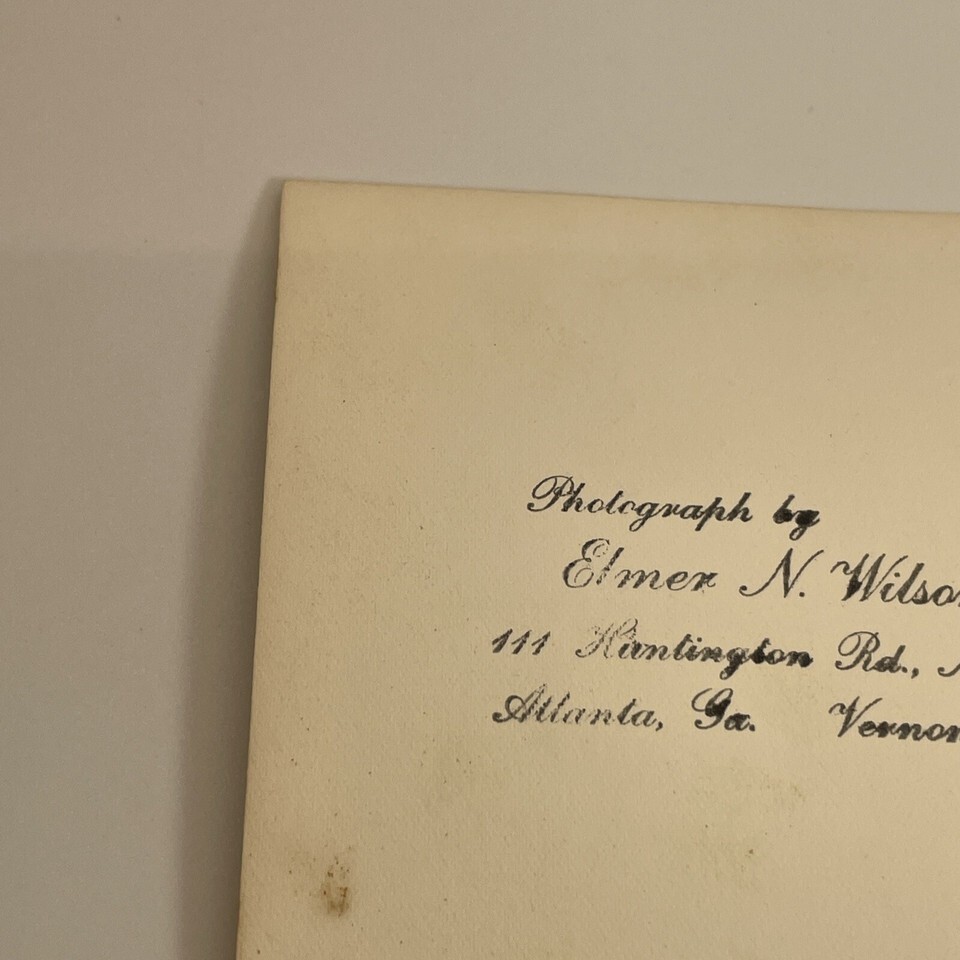 Photograph by
Elmer N. Wilson
111 Huntington Rd.,
Atlanta, Ga. Vernon